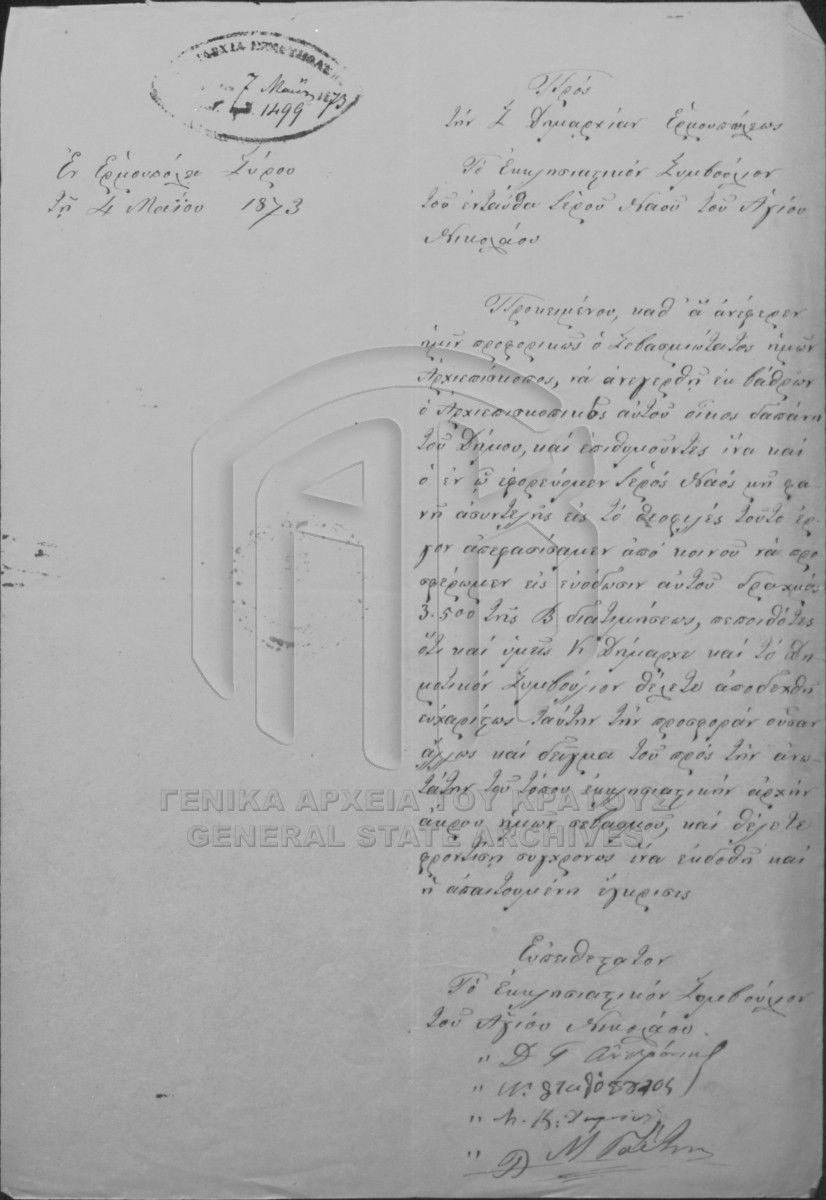 ΔΗΜΑΡΧΙΑ ΕΡΜΟΥΠΟΛΕΩΣ
7 Μαΐου 1873
1499
Ἐν Ἑρμουπόλει Σύρου
τῇ 4 Μαΐου 1873
Πρός
τήν Σ Δημαρχίαν Ἑρμουπόλεως
Τό Ἐκκλησιαστικόν Συμβούλιον
τοῦ ἐνταῦθα Ἱεροῦ Ναοῦ τοῦ Ἁγίου
Νικολάου
Προκειμένου, καθ' ἅ ἀνέφερεν
ἡμῖν προφορικῶς ὁ Σεβασμιώτατος ἡμῶν
Ἀρχιεπίσκοπος, νά ἀνεγερθῇ ἐκ βάθρων
ὁ Ἀρχιεπισκοπικός αὐτοῦ οἶκος δαπάνῃ
τοῦ Δήμου, καί ἐπιθυμοῦντες ἵνα καί
ὁ ἐν ᾧ ἐφορεύομεν Ἱερός Ναός μή φα-
νῇ ἀσυντελής εἰς τό θεοφιλές τοῦτο ἔρ-
γον ἀπεφασίσαμεν ἀπό κοινοῦ νά προ-
σφέρωμεν εἰς εὐόδωσιν αὐτοῦ δραχμάς
3.500 τῆς Β διατιμήσεως, πεποιθότες
ὅτι καί ὑμεῖς Κ Δήμαρχε καί τό Δη-
μοτικόν Συμβούλιον θέλετε ἀποδεχθῆ
εὐχαρίστως ταύτην τήν προσφοράν οὖσαν
ἄλλως καί δεῖγμα τοῦ πρός τήν ἀνω-
τάτην τοῦ τόπου ἐκκλησιαστικήν ἀρχήν
ἄκρου ἡμῶν σεβασμοῦ, καί θέλετε
φροντίσῃ συγχρόνως ἵνα ἐκδοθῇ καί
ἡ ἀπαιτουμένη ἔγκρισις
Εὐπειθέστατον
Τό Ἐκκλησιαστικόν Συμβούλιον
τοῦ Ἁγίου Νικολάου.
" Δ Γ
"
" Ν. Κ.
" Δ Μ
ΓΕΝΙΚΑ ΑΡΧΕΙΑ ΤΟΥ ΚΡΑΤΟΥΣ
GENERAL STATE ARCHIVES